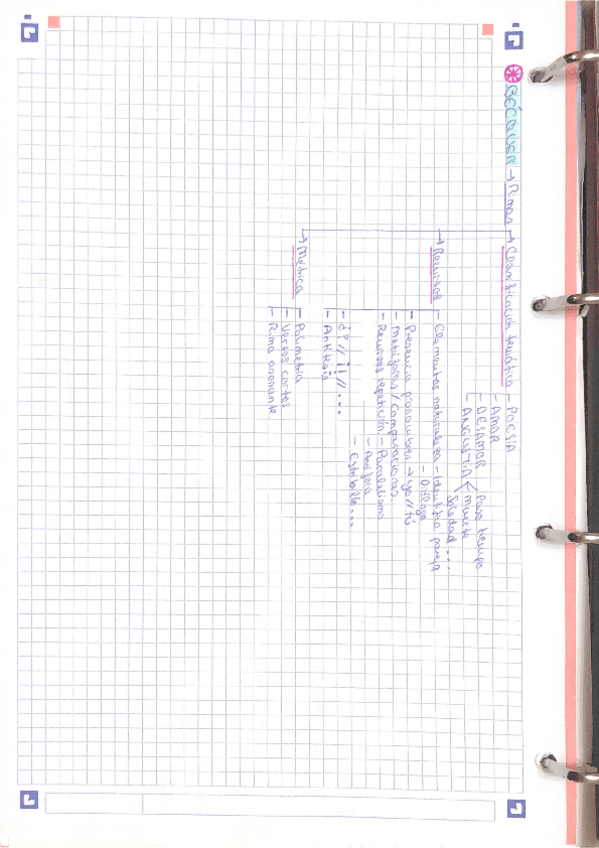 BÉCQUER → Rimas → Clasificación temática - POESÍA
- AMOR
- DESAMOR
- ANGUSTIA < Paso tiempo
muerte
Soledad...
→ Recursos - Elementos naturaleza - Identifica pareja
- Diálogo
- Presencia pronombres → yo // tú
- Metáforas / Comparaciones
- Recursos repetición - Paralelismo
- Anáfora
- Estribillo...
- ¿? // ¡! // ...
- Antítesis
→ Métrica - Polimetría
- Versos cortos
- Rima asonante